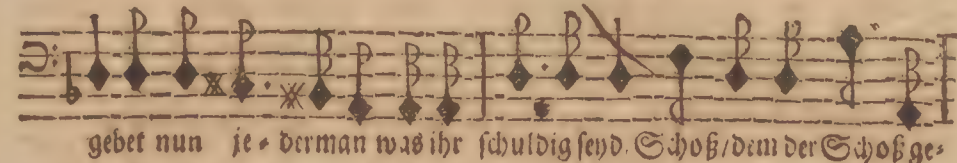 gebet nun je-derman was ihr schuldig seyd. Schoß/dem der Schoß ge-